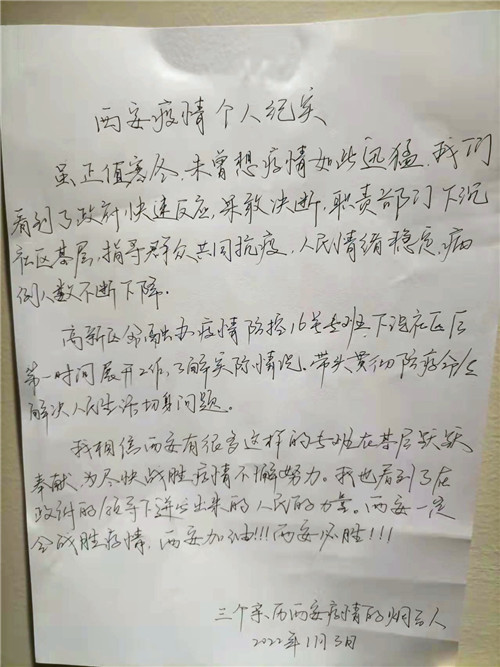 西安疫情个人纪实
虽正值寒冬,未曾想疫情如此迅猛,我们
看到了政府快速反应,果敢决断,职责部门下沉
社区基层,指导群众共同抗疫,人民情绪稳定,病
例人数不断下降。
高新区 疫情防控16号专班下沉社区后
第一时间展开工作,了解实际情况。带头贯彻防疫命令
解决人民生活切身问题。
我相信西安有很多这样的专班在基层默默
奉献,为尽快战胜疫情不懈努力。我也看到了在
政府的领导下迸发出来的人民的力量。西安一定
会战胜疫情,西安加油!!!西安必胜!!!
三个亲历西安疫情的烟台人
2022年1月3日